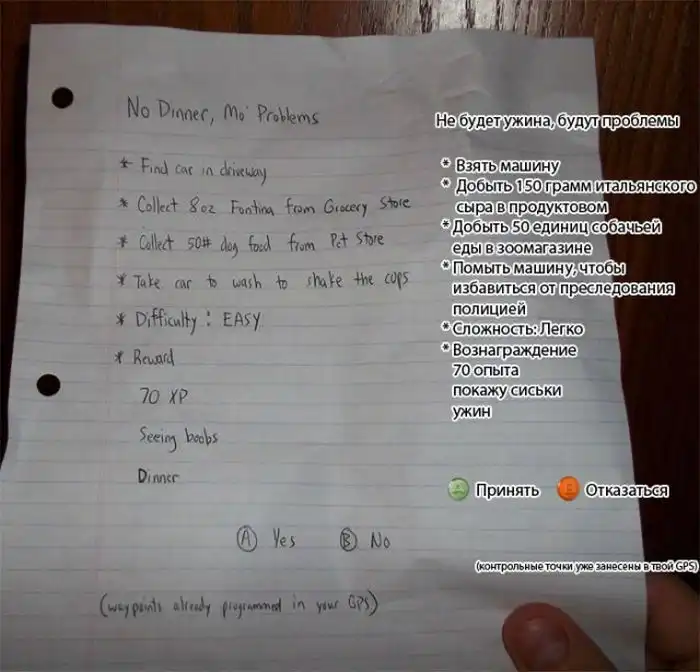 No Dinner, Mo' Problems
* Find car in driveway
* Collect 8oz Fontina from Grocery Store
* Collect 50# dog food from Pet Store
* Take car to wash to shake the cops
* Difficulty: EASY
* Reward
70 XP
Seeing boobs
Dinner
A Yes B No
(waypoints already programmed in your GPS)
Не будет ужина, будут проблемы
* Взять машину
* Добыть 150 грамм итальянского
сыра в продуктовом
* Добыть 50 единиц собачьей
еды в зоомагазине
* Помыть машину, чтобы
избавиться от преследования
полицией
* Сложность: Легко
* Вознаграждение
70 опыта
покажу сиськи
ужин
Принять Отказаться
(контрольные точки уже занесены в твой GPS)